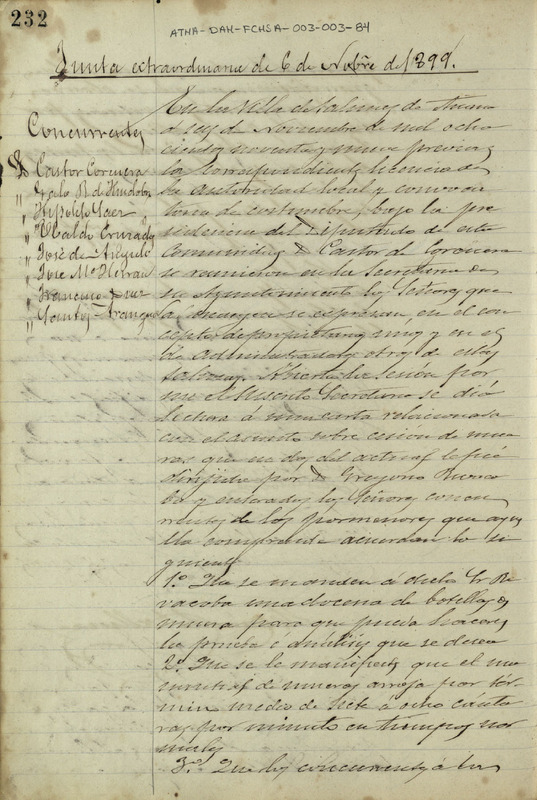 232
ATHA-DAH-FCHSA-003-003-84
Junta extraordinaria de 6 de Nobre de 1899.
Concurrentes
D. Castor Corcuera
" Galo R. de Huidobro
" Hipolito Saez
" Ubaldo Cruzado
" José de Angulo
" Jose Ma Herran
" Francisco
" Santos Aranguez
En la villa de Salinas de Añana
á seis de Noviembre de mil ocho
cientos noventa y nueve previa
la correspondiente licencia de
la autoridad local y convoca
toria de costumbre, bajo la pre
sidencia del Diputado de esta
Comunidad D. Castor de Corcuera
se reunieron en la Secretaria de
su Ayuntamiento los Señores que
al margen se expresan, en el con
cepto de propietarios unos y en el
de Administradores otros de estas
Salinas. Abierta la sesion por
mi el Secretario se dió
lectura á una carta relacionada
con el asunto sobre cesion de mue
ras que en dos del actual le fué
dirijida por D. Gregorio Revaco
ba y enterados los Señores concu
rrentes de los pormenores que aque
lla comprende acuerdan lo si
guiente
1.º Que se manden á dicho Sr. Re
vacoba una docena de botellas de
muera para que pueda hacer
la prueba ó análisis que se desea
2.º Que se le manifieste que el ma
nantial de mueras arroja por tér
mino medio de siete á ocho cánta
ras por minuto en tiempos nor
males
3.º Que los concurrentes á la